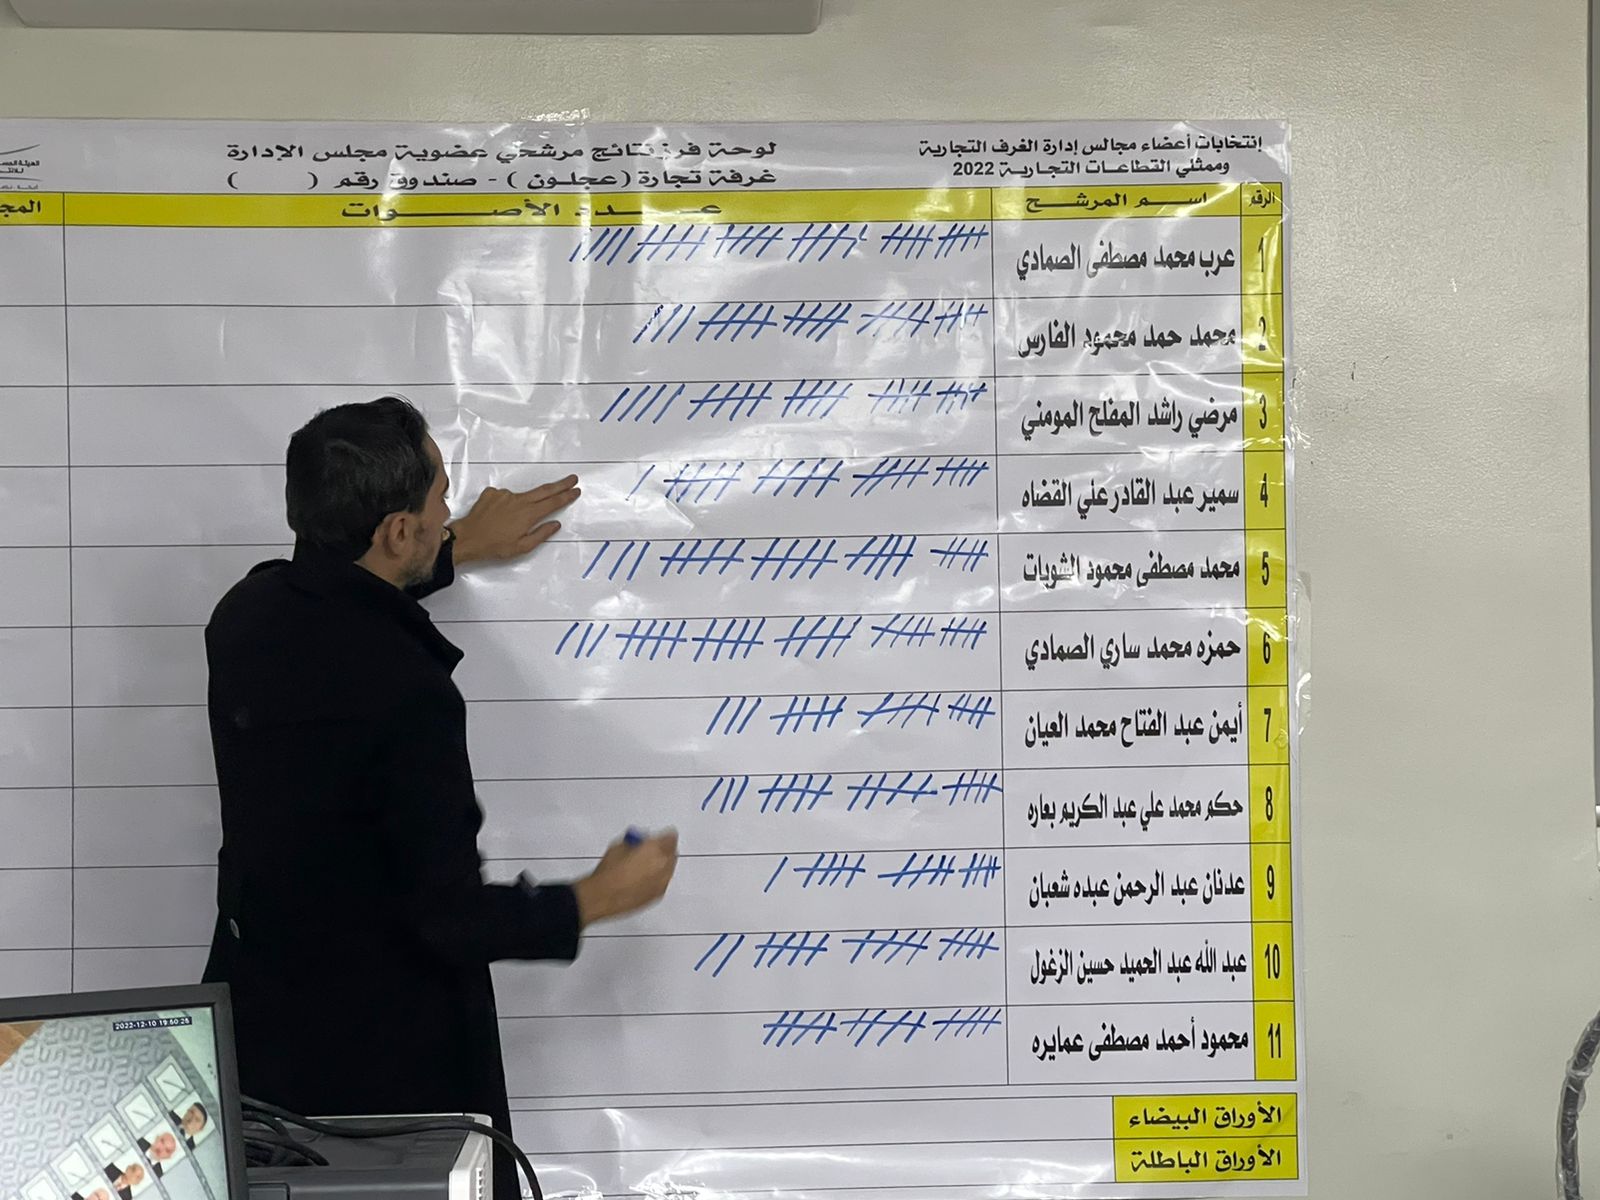 إنتخابات أعضاء مجالس إدارة الغرف التجارية
وممثلي القطاعات التجارية 2022
لوحة فرز نتائج مرشحي عضوية مجلس الإدارة
غرفة تجارة (عجلون) - صندوق رقم ( )
الرقم اسم المرشح عدد الأصوات
1 عرب محمد مصطفى الصمادي
2 محمد حمد محمود الفارس
3 مرضي راشد المفلح المومني
4 سمير عبد القادر علي القضاه
5 محمد مصطفى محمود الشويات
6 حمزه محمد ساري الصمادي
7 أيمن عبد الفتاح محمد العيان
8 حكم محمد علي عبد الكريم بعاره
9 عدنان عبد الرحمن عبده شعبان
10 عبد الله عبد الحميد حسين الزغول
11 محمود أحمد مصطفى عمايره
الأوراق البيضاء
الأوراق الباطلة
2022-12-10 19:50:25